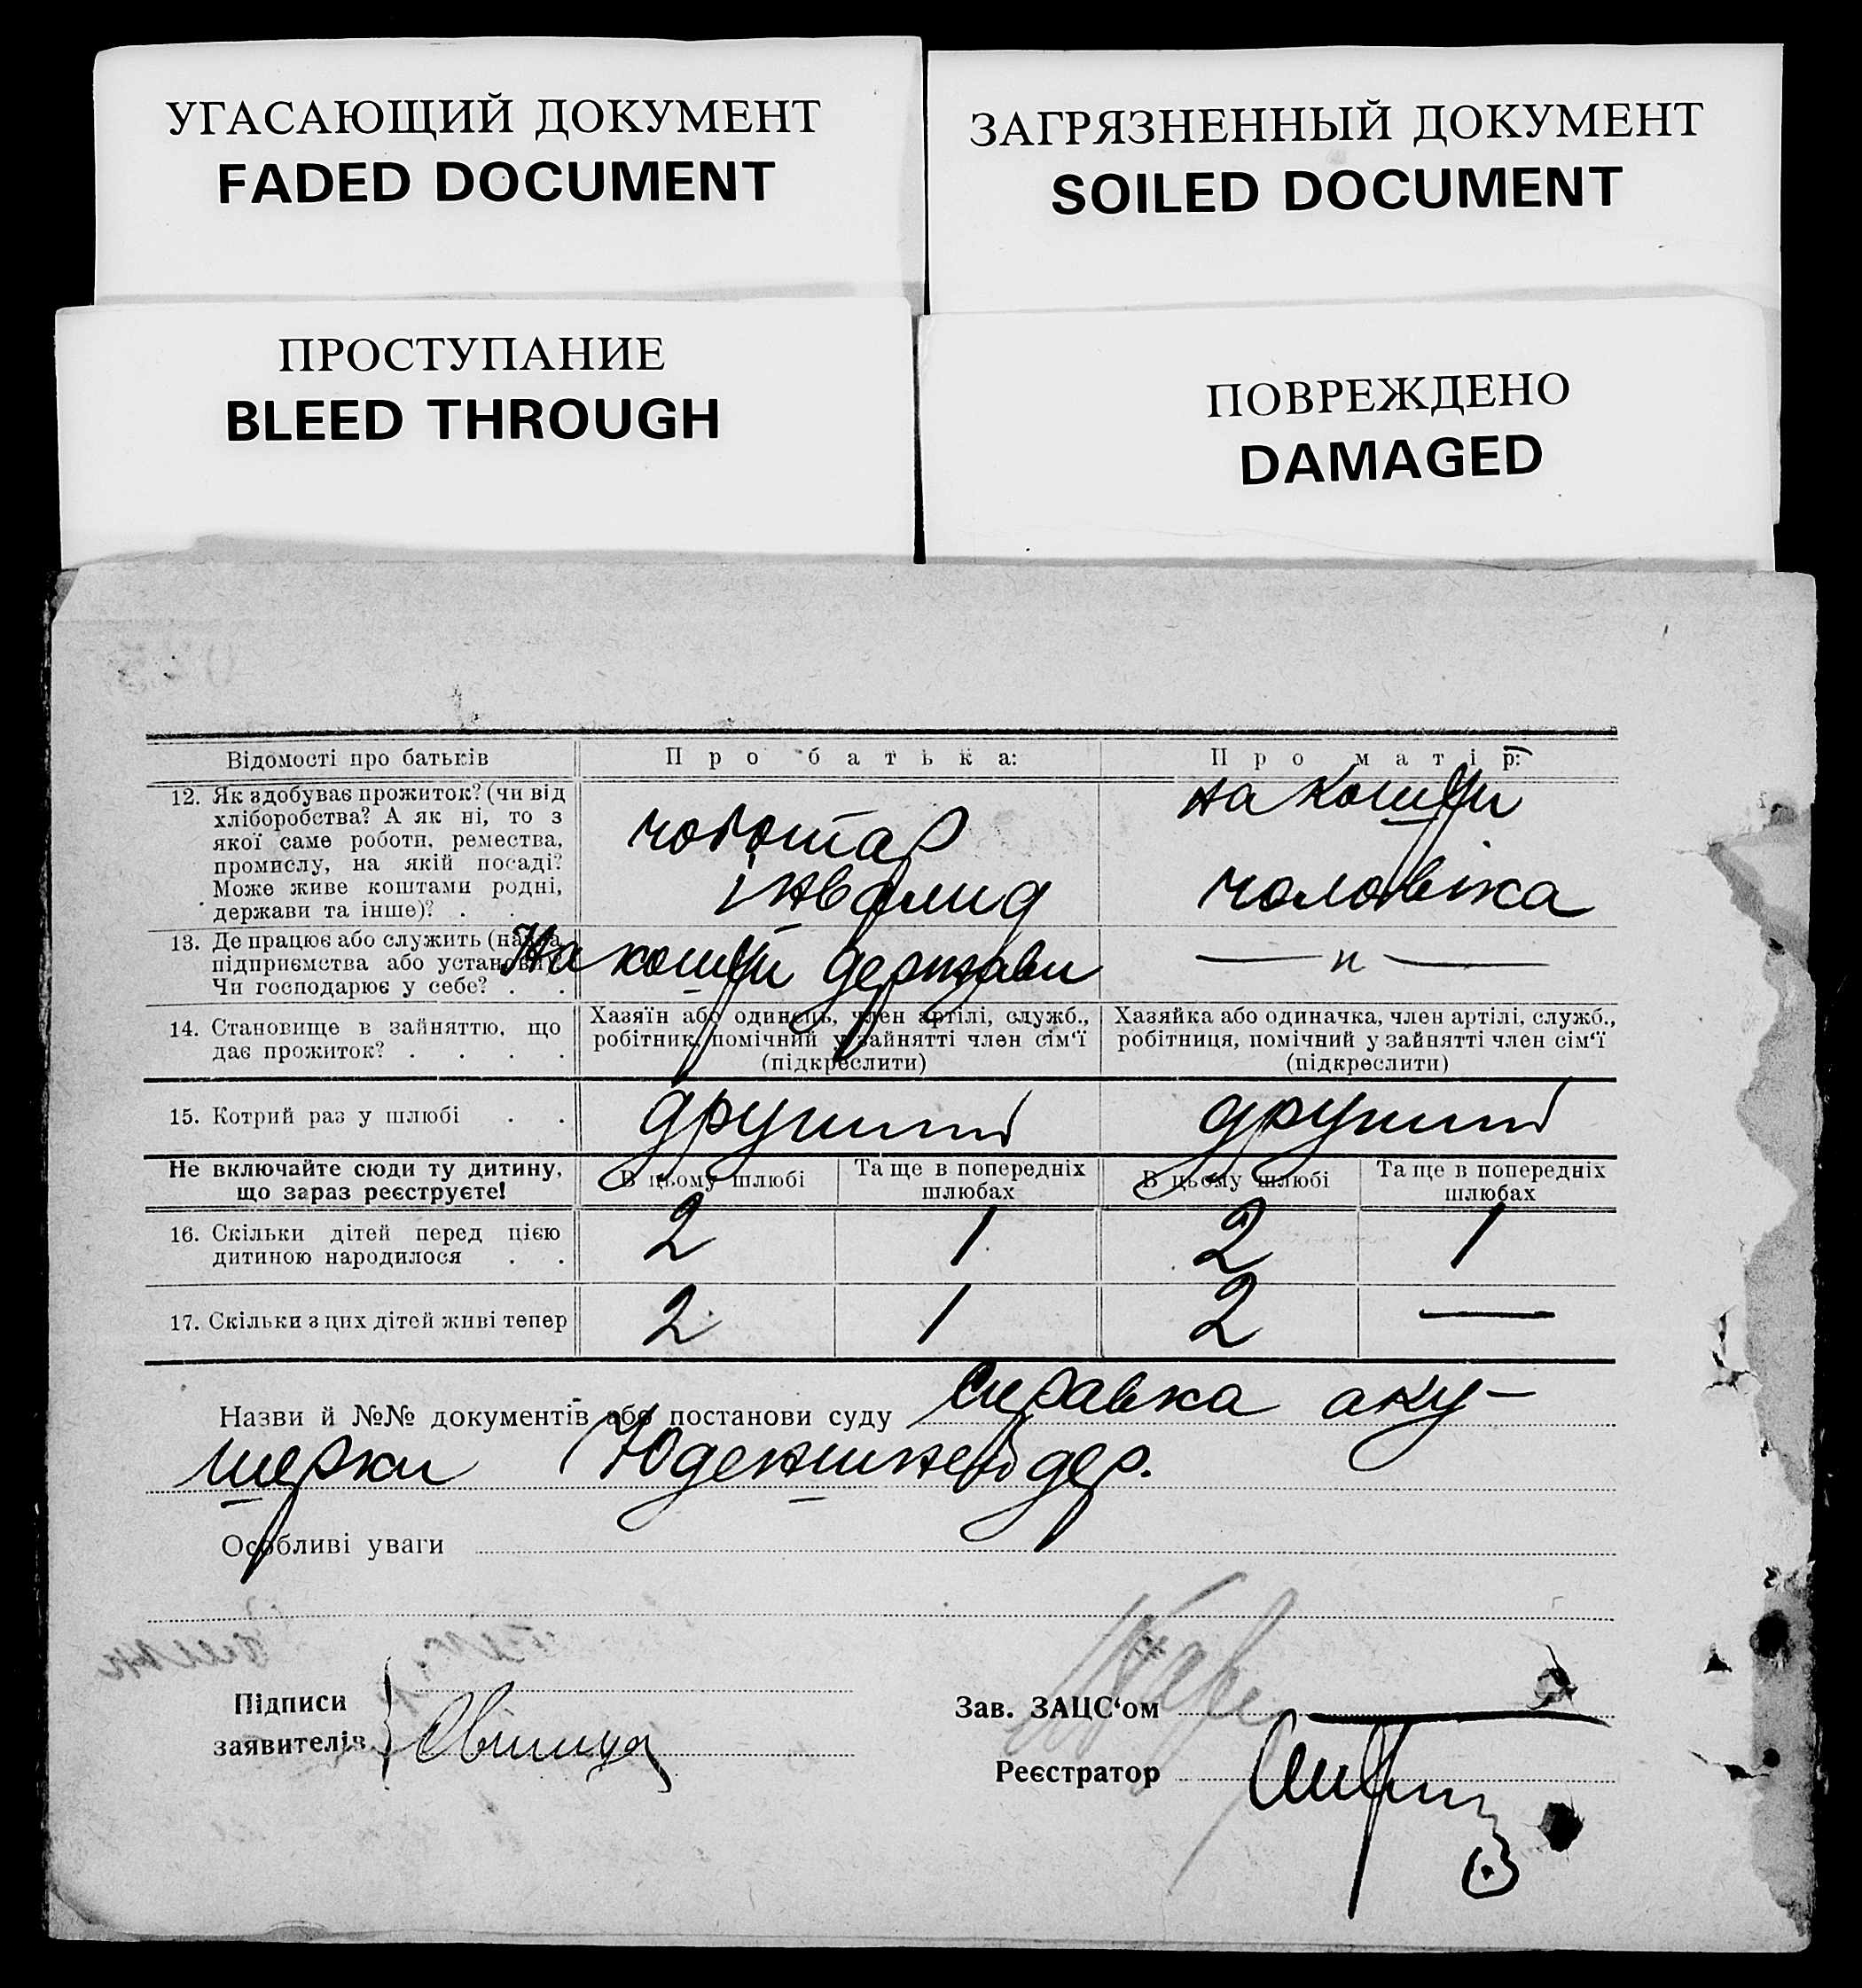 УГАСАЮЩИЙ ДОКУМЕНТ
FADED DOCUMENT
ЗАГРЯЗНЕННЫЙ ДОКУМЕНТ
SOILED DOCUMENT
ПРОСТУПАНИЕ
BLEED THROUGH
ПОВРЕЖДЕНО
DAMAGED
Відомості про батьків
Про батька:
Про матір:
12. Як здобуває прожиток? (чи від
хліборобства? А як ні, то з
якої саме роботи, ремества,
промислу, на якій посаді?
Може живе коштами родні,
держави та інше)? . .
чоботар
інвалид
на кошти
чоловіка
13. Де працює або служить (назва
підприємства або установи)?
Чи господарює у себе? . .
На кошти держави
— „ —
14. Становище в зайняттю, що
дає прожиток? . . . .
Хазяїн або одинець, член артілі, служб.,
робітник, помічний у зайнятті член сім‘ї
(підкреслити)
Хазяйка або одиначка, член артілі, служб.,
робітниця, помічний у зайнятті член сім‘ї
(підкреслити)
15. Котрий раз у шлюбі . .
другий
другий
Не включайте сюди ту дитину,
що зараз реєструєте!
В цьому шлюбі
Та ще в попередніх
шлюбах
В цьому шлюбі
Та ще в попередніх
шлюбах
16. Скільки дітей перед цією
дитиною народилося . .
2 1 2 1
17. Скільки з цих дітей живі тепер
2 1 2 —
Назви й №№ документів або постанови суду справка аку-
шерки
Особливі уваги
Підписи
заявителів
Зав. ЗАЦС‘ом
Реєстратор